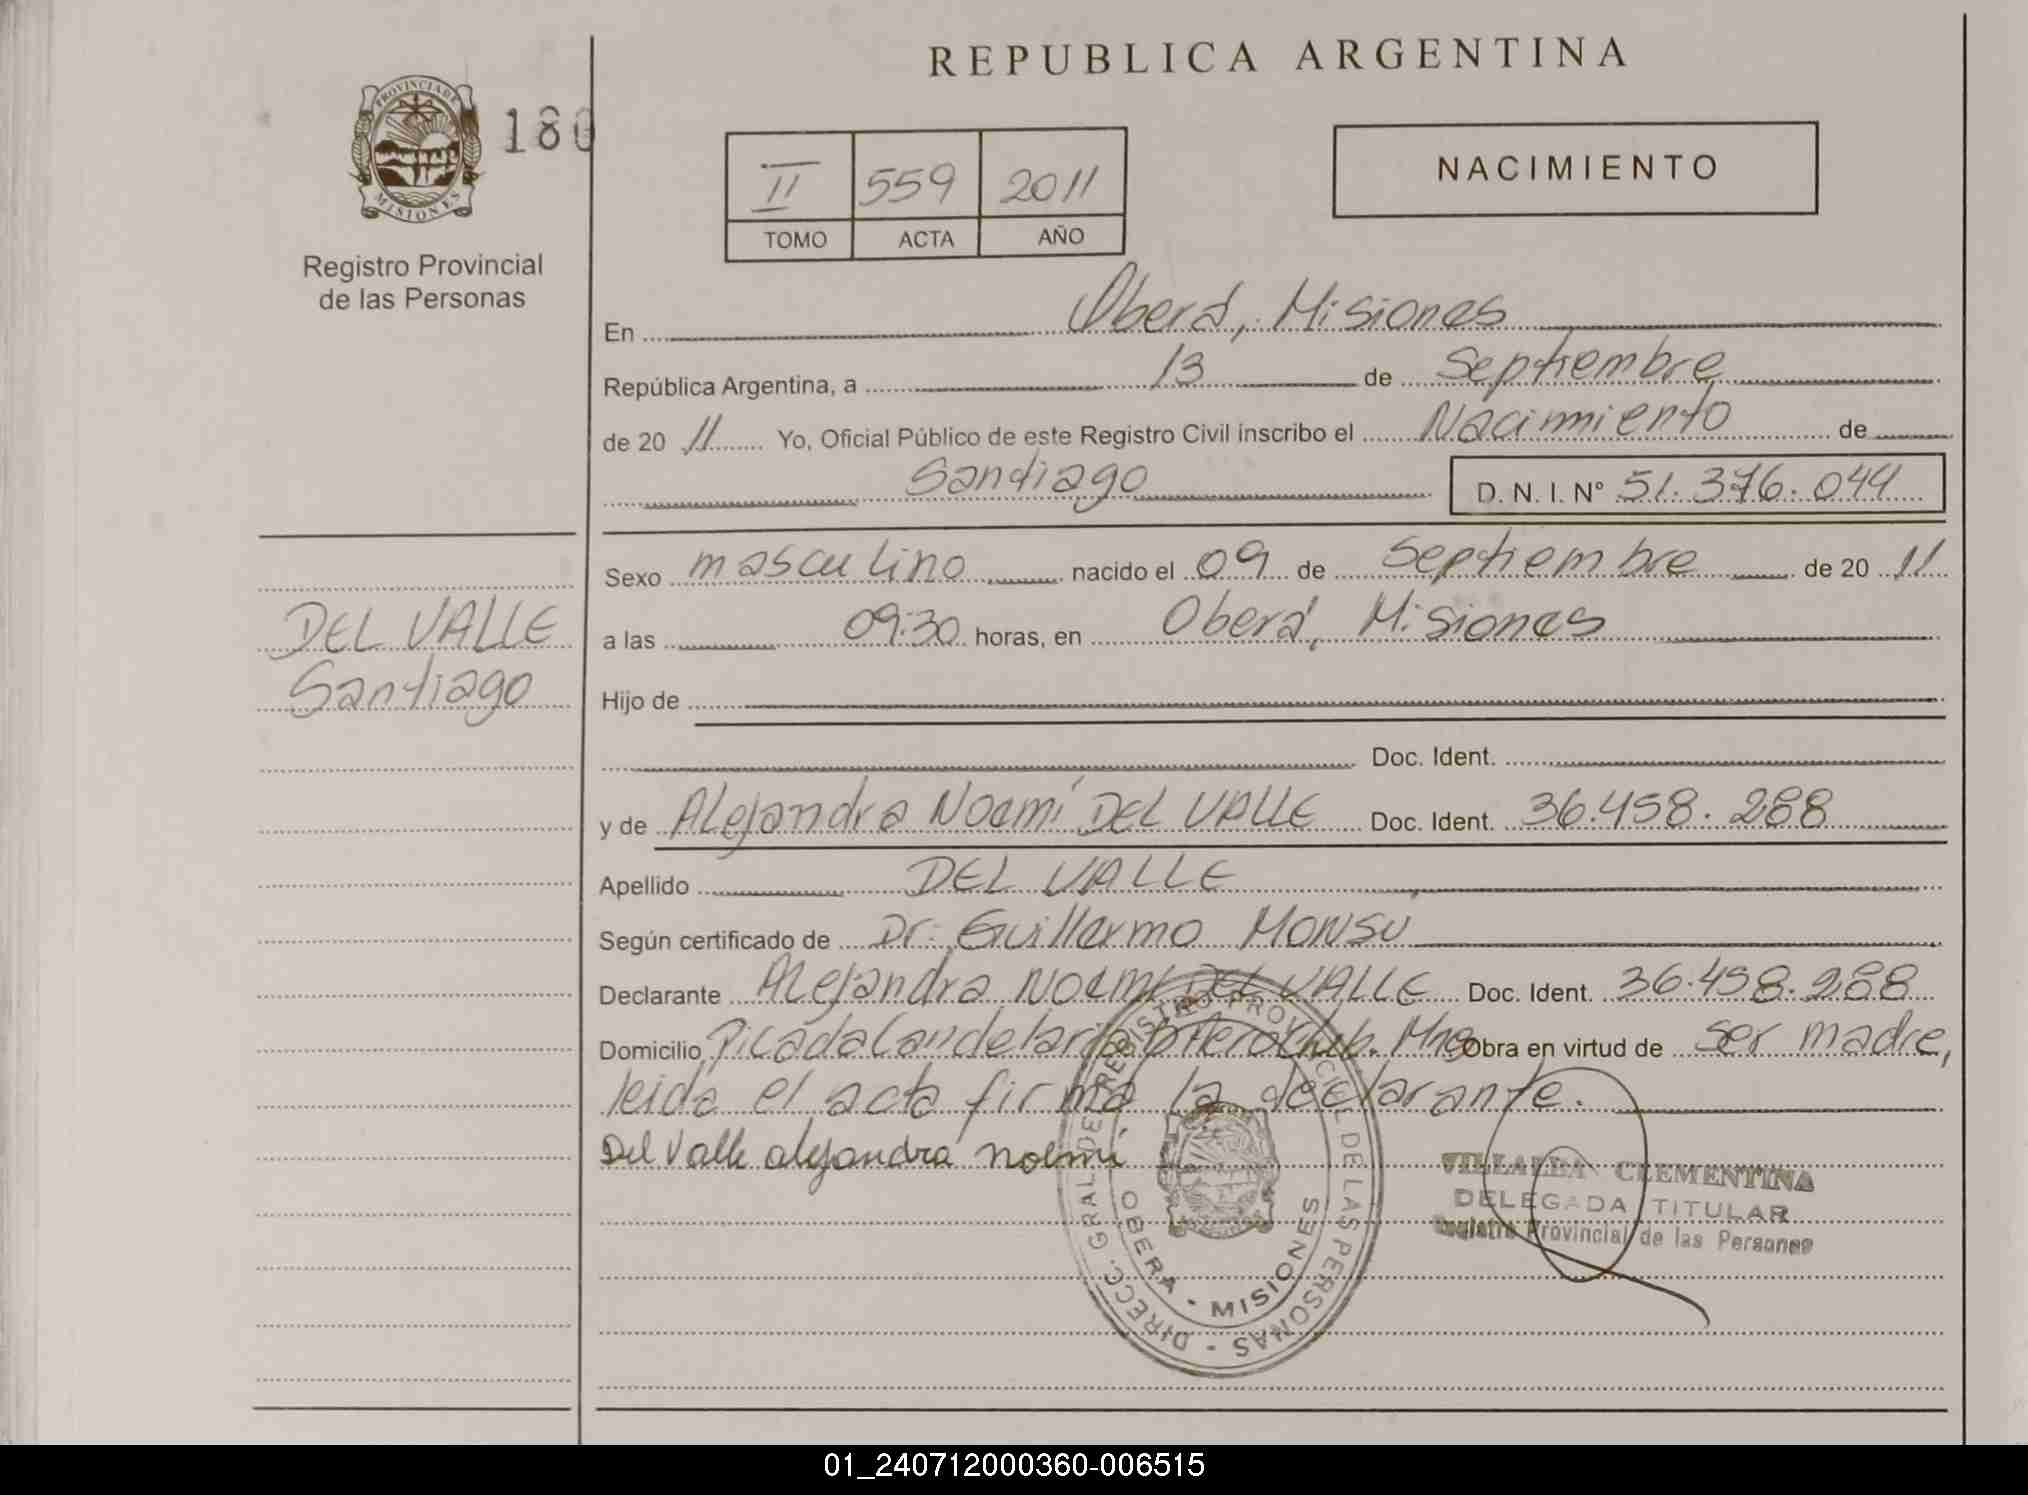 REPUBLICA ARGENTINA
PROVINCIA DE MISIONES
180
II 559 2011
TOMO ACTA AÑO
NACIMIENTO
Registro Provincial
de las Personas
En Oberá, Misiones
República Argentina, a 13 de Septiembre
de 20 11 Yo, Oficial Público de este Registro Civil inscribo el Nacimiento de
Santiago D. N. I. N° 51.376.044
Sexo masculino nacido el 09 de Septiembre de 20 11
DEL VALLE
Santiago
a las 09:30 horas, en Oberá, Misiones
Hijo de
Doc. Ident.
y de Alejandra Noemí DEL VALLE Doc. Ident. 36.458.288
Apellido DEL VALLE
Según certificado de Dr. Guillermo MONSÚ
Declarante Alejandra Noemí DEL VALLE Doc. Ident. 36.458.288
Domicilio Picada Candelaria Mnes Obra en virtud de ser madre,
leida el acta firma la declarante.
Del Valle alejandra noemí
VILLALBA CLEMENTINA
DELEGADA TITULAR
Registro Provincial de las Personas
DIRECC. GRAL. DE REGISTRO PROVINCIAL DE LAS PERSONAS -
OBERA - MISIONES
01_240712000360-006515